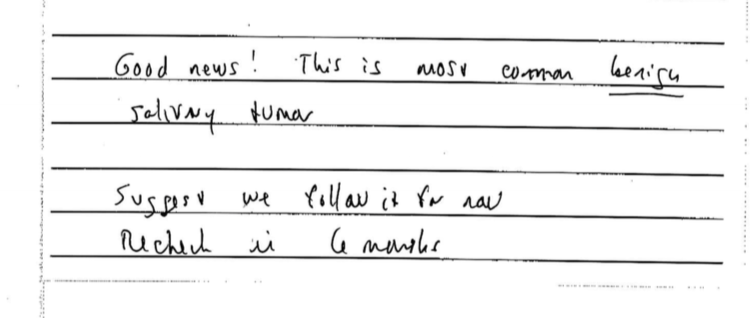 Good news! This is most common benign
salivary tumor
Suggest we follow it for now
Recheck in 6 months